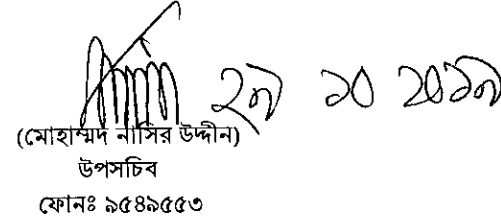 ২৭ ১০ ২০১৭
(মোহাম্মদ নাসির উদ্দীন)
উপসচিব
ফোনঃ ৯৫৪৯৫৫৩